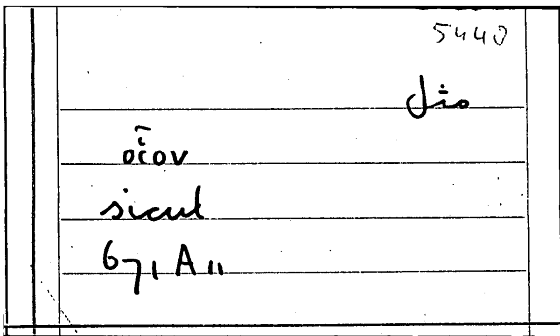 5440
مثل
οἷον
sicut
671 A 11